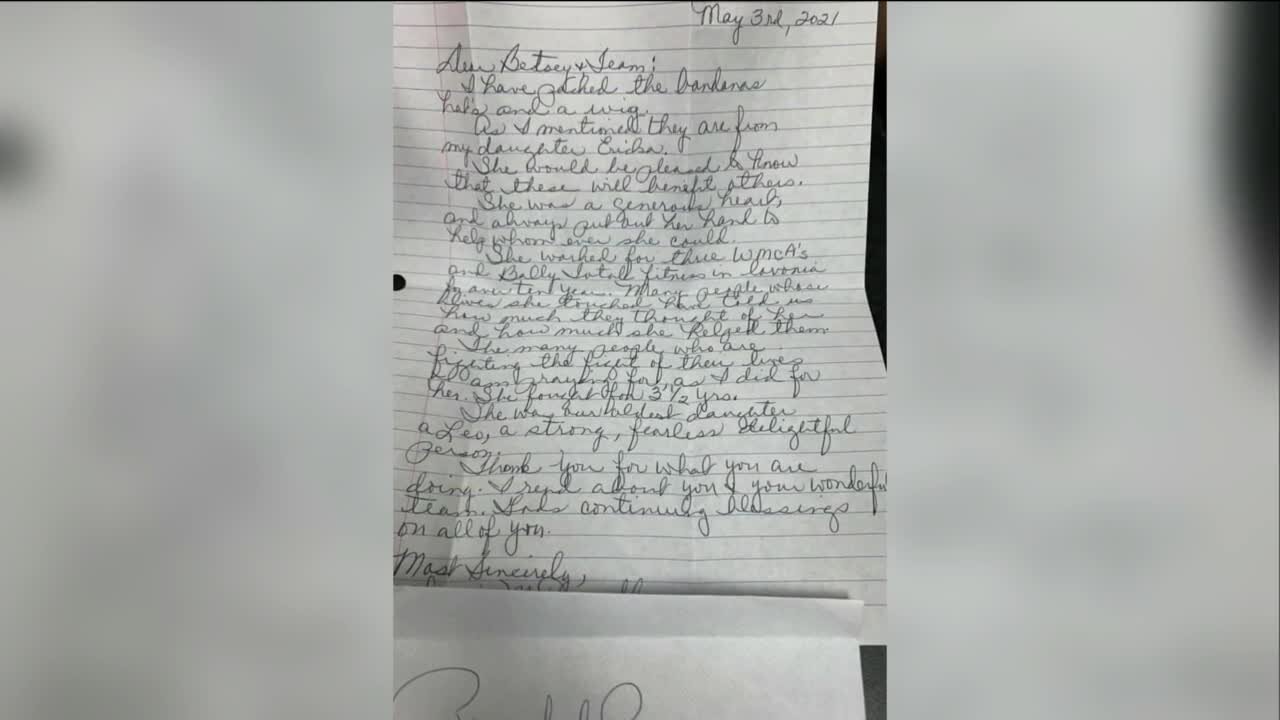 May 3rd, 2021
Dear Betsey & Team:
I have packed the bandanas
hats and a wig.
As I mentioned they are from
my daughter Ericka.
She would be pleased to know
that these will benefit others.
She was a generous heart,
and always put out her hand to
help whom ever she could.
She worked for three WMCA's
and Bally Total fitness in Lavonia
for over ten years. Many people whose
lives she touched have told us
how much they thought of her
and how much she helped them.
The many people who are
fighting the fight of their lives
I am praying for, as I did for
her. She fought for 3 1/2 yrs.
She was our oldest daughter
a Leo, a strong, fearless delightful
person.
Thank you for what you are
doing. I read about you & your wonderful
team. Gods continuing blessings
on all of you.
Most Sincerely,